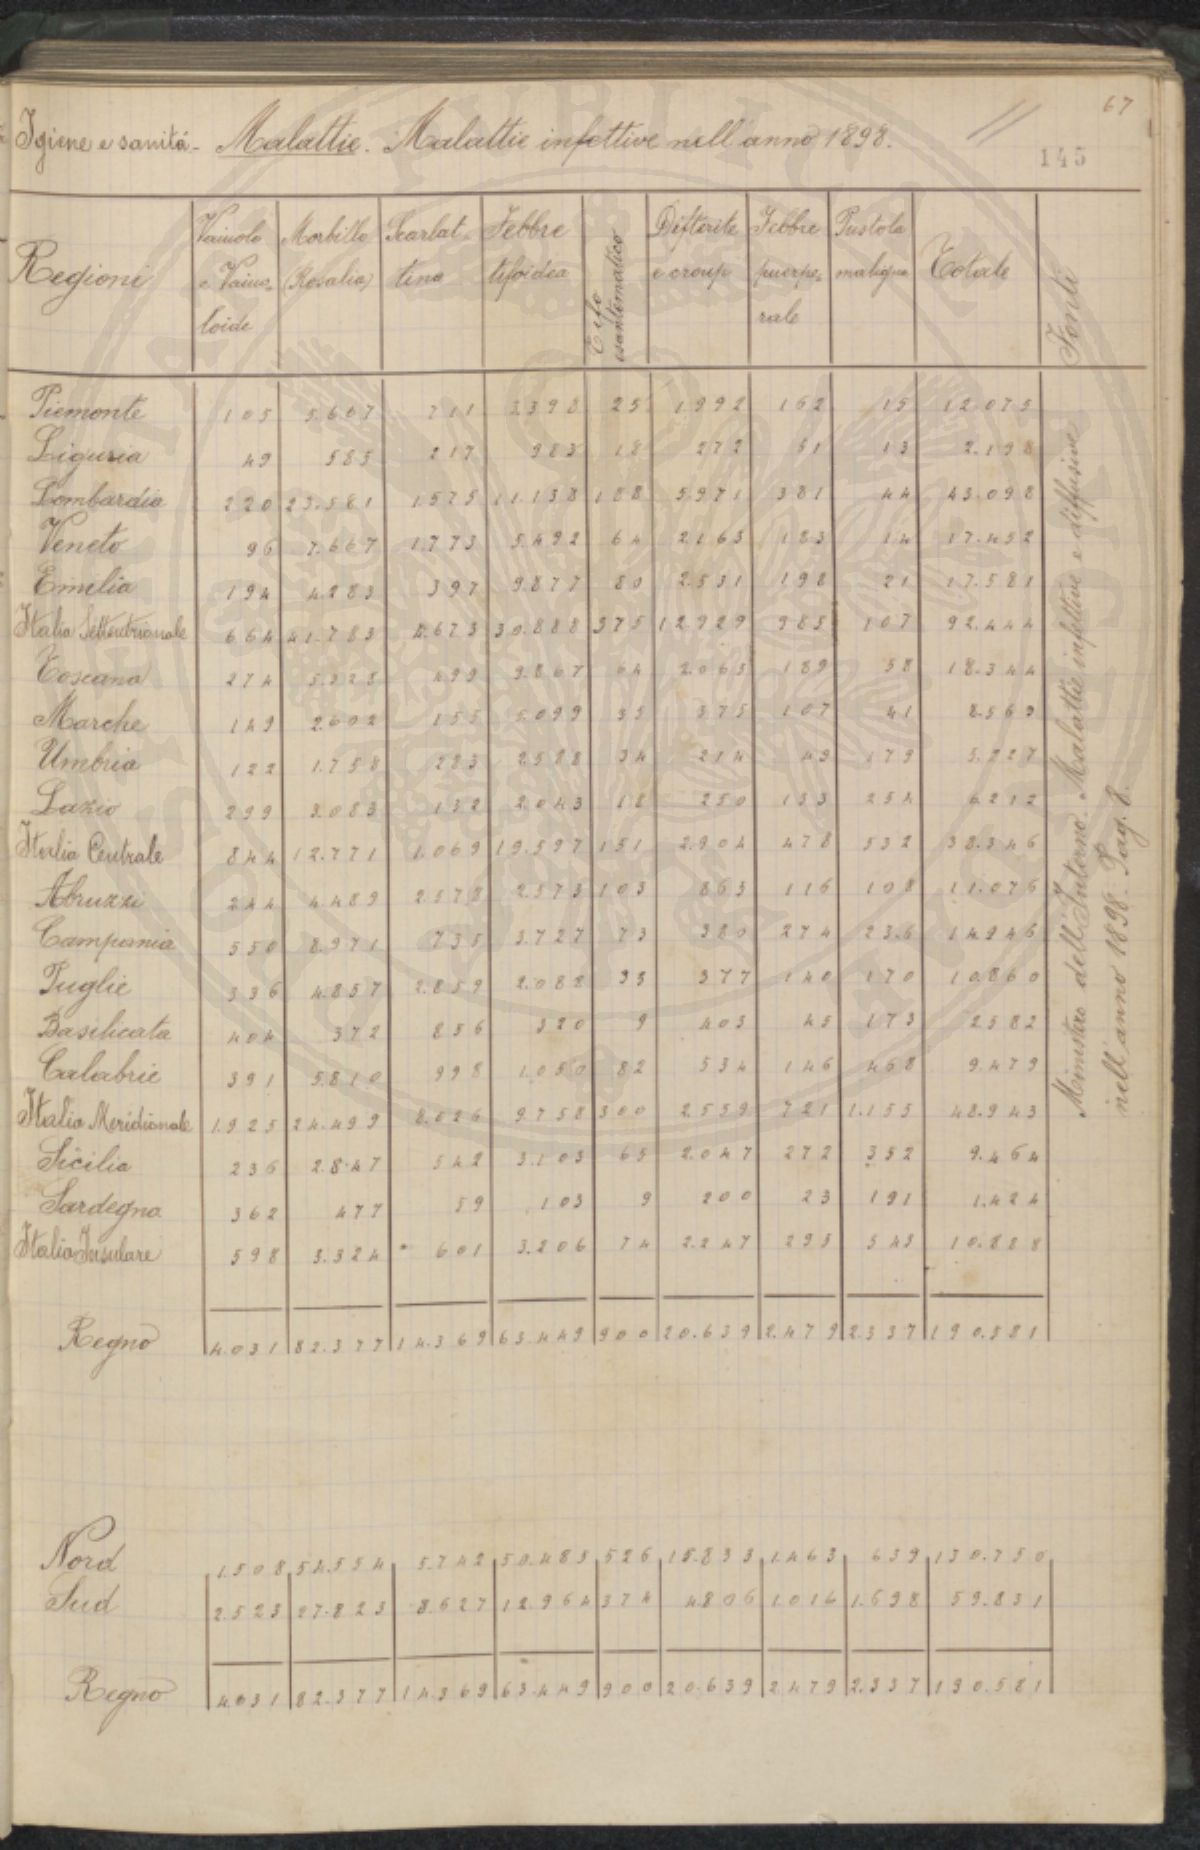 67
Igiene e sanitá - Malattie. Malattie infettive nell'anno 1898.
145
Regioni | Vaiuolo e Vaiuoloide | Morbillo (Rosalia) | Scarlattina | Febbre tifoidea | Tifo esantematico | Difterite e croup | Febbre puerperale | Pustola maligna | Totale | Fonti
Piemonte 105 5.607 711 3398 25 1992 162 15 12.075
Liguria 49 585 217 983 18 272 61 13 2.198
Lombardia 220 23.581 1.575 11.138 188 5.971 381 44 43.098
Veneto 96 7.667 1.773 5.492 64 2163 183 14 17.452
Emilia 194 4.283 397 9.877 80 2.531 198 21 17.581
Italia Settentrionale 664 41.783 4.673 30.888 375 12.929 985 107 92.444
Toscana 274 5.328 499 9.867 64 2.065 189 58 18.344
Marche 149 2.602 155 5.099 35 375 107 41 8.563
Umbria 122 1.758 283 2588 34 214 49 179 5.227
Lazio 299 3.083 132 2.043 18 250 133 254 6.212
Italia Centrale 844 12.771 1.069 19.597 151 2.904 478 532 38.346
Abruzzi 244 4.489 2578 2.573 103 865 116 108 11.076
Campania 550 8.971 735 3.727 73 380 274 236 14.946
Puglie 336 4.857 2.859 2.088 33 377 140 170 10.860
Basilicata 404 372 856 320 9 403 45 173 2582
Calabrie 391 5.810 998 1.050 82 534 146 468 9.479
Italia Meridionale 1.925 24.499 8.026 9.758 300 2.559 721 1.155 48.943
Sicilia 236 2.847 542 3.103 65 2.047 272 352 9.464
Sardegna 362 477 59 103 9 200 23 191 1.424
Italia Insulare 598 3.324 601 3.206 74 2.247 295 543 10.888
Regno 4.031 82.377 14.369 63.449 900 20.639 2.479 2.337 190.581
Nord 1.508 54.554 5.742 50.485 526 15.833 1.463 639 130.750
Sud 2.523 27.823 8.627 12.964 374 4.806 1.016 1.698 59.831
Regno 4.031 82.377 14.369 63.449 900 20.639 2.479 2.337 190.581
Ministero dell'Interno. Malattie infettive e diffusive
nell'anno 1898. Pag. 8.